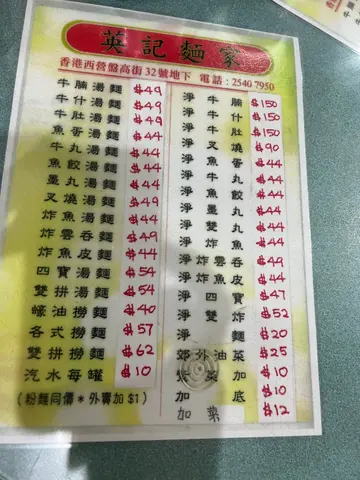 英記麵家
香港西營盤高街32號地下 電話：2540 7950
牛腩湯麵 $49
牛什湯麵 $49
牛肚湯麵 $49
魚蛋湯麵 $44
牛丸湯麵 $44
魚餃湯麵 $44
墨丸湯麵 $44
叉燒湯麵 $44
炸魚湯麵 $44
炸雲吞麵 $49
炸魚皮麵 $44
四寶湯麵 $54
雙拼湯麵 $54
蠔油撈麵 $40
各式撈麵 $57
雙拼撈麵 $62
汽水每罐 $10
(粉麵同價＊外賣加$1)
淨牛腩 $150
淨牛什 $150
淨牛肚 $150
淨叉燒 $90
淨魚蛋 $44
淨魚餃 $44
淨牛丸 $44
淨墨丸 $44
淨炸魚 $44
淨炸雲吞 $44
淨炸魚皮 $44
淨四寶 $47
淨雙 $52
淨麵 $20
郊外油菜 $25
加底 $10
加菜 $12